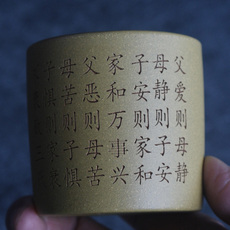 父爱则母静
母静则子安
子安则家和
家和万事兴
父恶则母苦
母苦则子惧
子惧则家